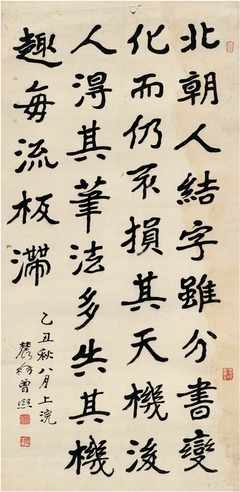 北朝人結字雖分書變
化而仍不損其天機後
人得其筆法多失其機
趣每流板滯
乙丑秋八月上浣
農髯曾熙